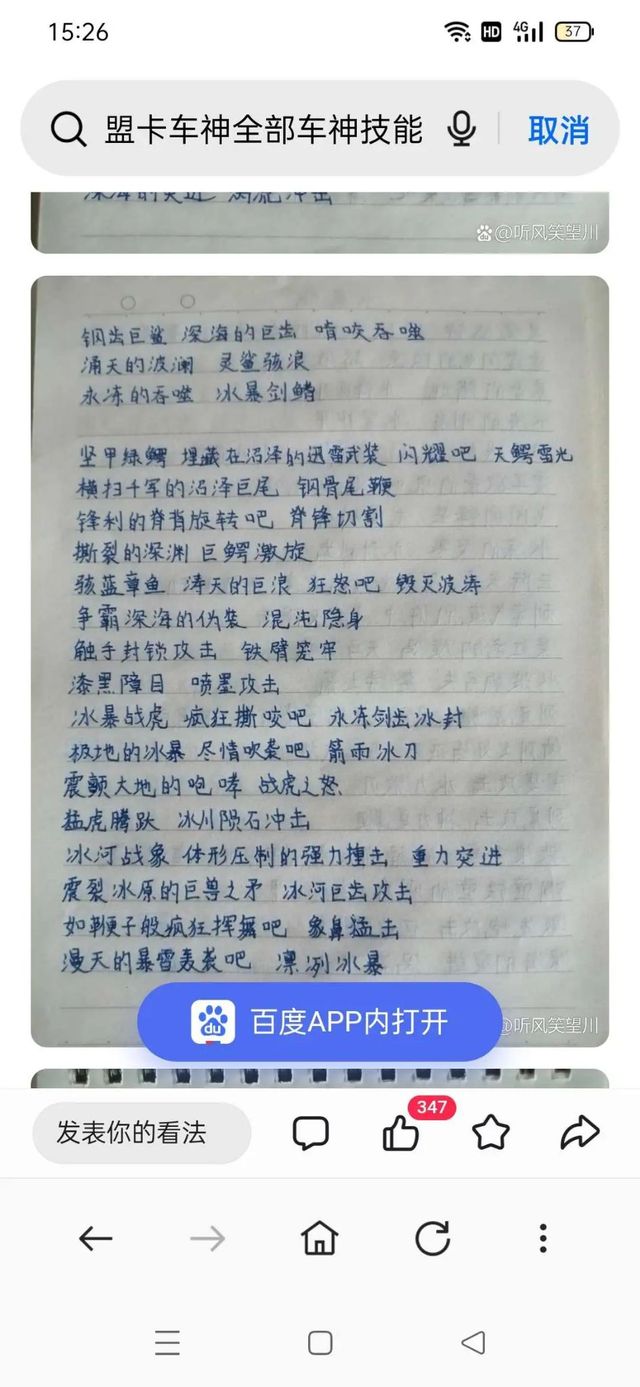 15:26
HD 4G 37
盟卡车神全部车神技能 取消
@听风笑望川
钢齿巨鲨 深海的巨齿 啃咬吞噬
涌天的波澜 灵鲨骇浪
永冻的吞噬 冰暴剑鳍
坚甲绿鳄 埋藏在沼泽的迅雷武装 闪耀吧 天鳄雷光
横扫千军的沼泽巨尾 钢骨尾鞭
锋利的脊背旋转吧 脊锋切割
撕裂的深渊 巨鳄激旋
骇蓝章鱼 涛天的巨浪 狂怒吧 毁灭波涛
争霸深海的伪装 混沌隐身
触手封锁攻击 铁臂笼牢
漆黑障目 喷墨攻击
冰暴战虎 疯狂撕咬吧 永冻剑齿冰封
极地的冰暴 尽情吹袭吧 箭雨冰刀
震颤大地的咆哮 战虎之怒
猛虎腾跃 冰川陨石冲击
冰河战象 体形压制的强力撞击 重力突进
震裂冰原的巨兽之矛 冰河巨齿攻击
如鞭子般疯狂挥舞吧 象鼻猛击
漫天的暴雪轰袭吧 凛冽冰暴
du 百度APP内打开
@听风笑望川
发表你的看法 347